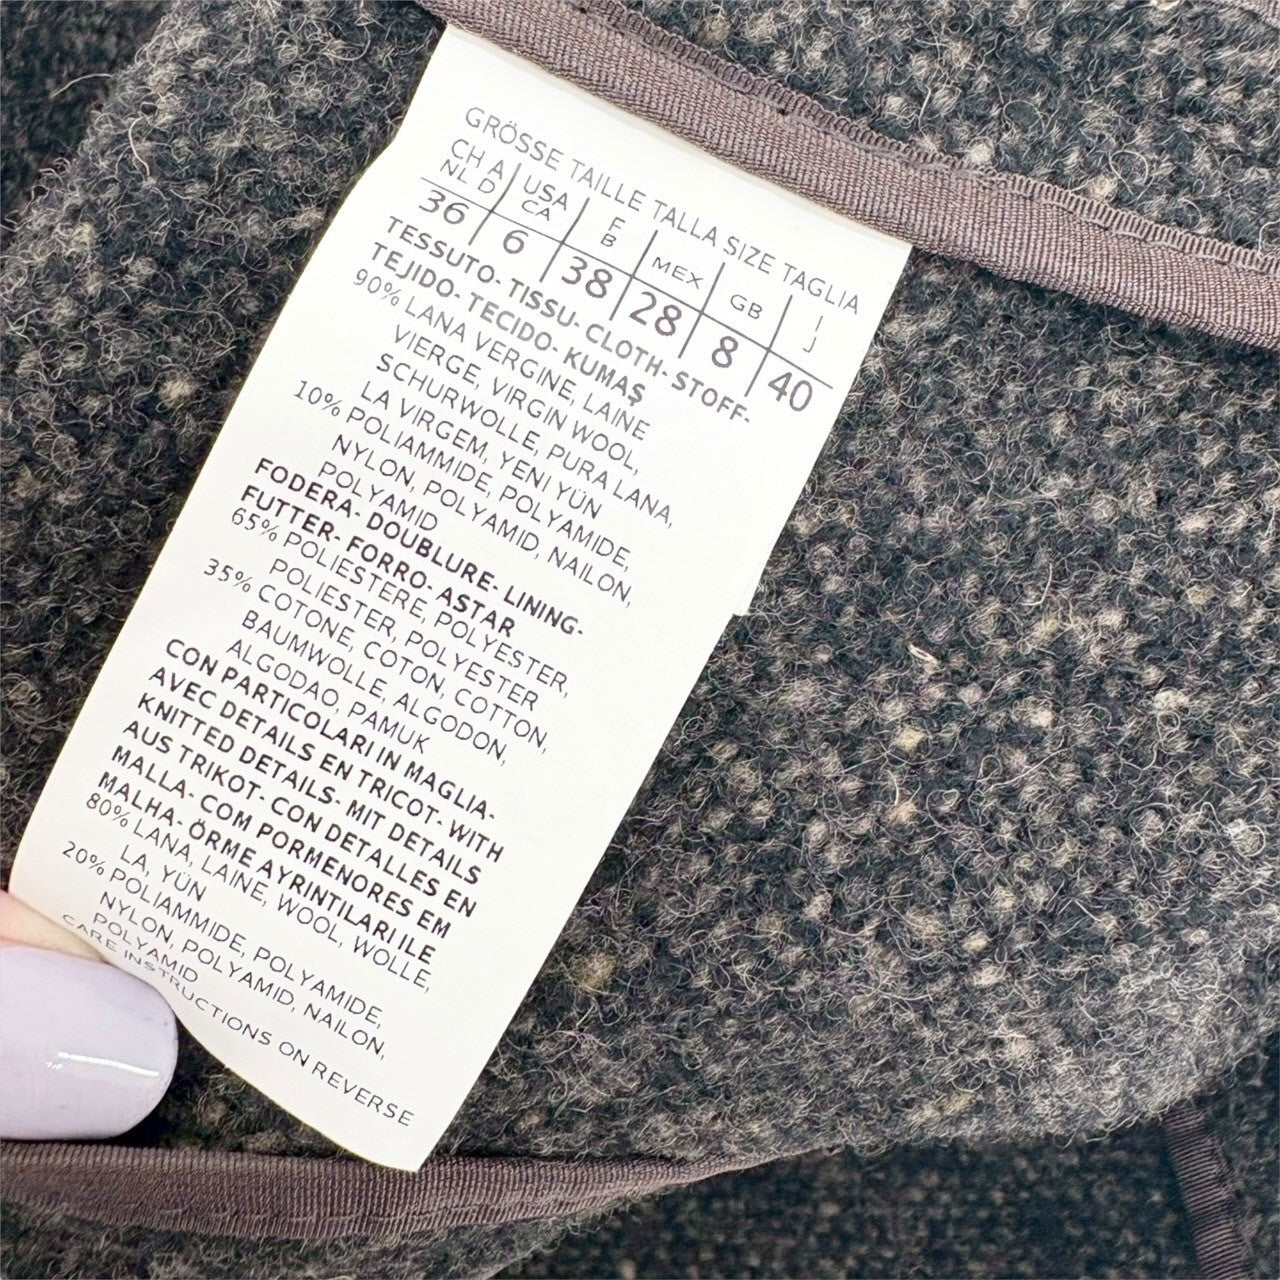 GRÖSSE TAILLE TALLA SIZE TAGLIA
CH A USA F MEX GB I
NL D CA B J
36 6 38 28 8 40
TESSUTO- TISSU- CLOTH- STOFF-
TEJIDO- TECIDO- KUMAŞ
90% LANA VERGINE, LAINE
VIERGE, VIRGIN WOOL,
SCHURWOLLE, PURA LANA,
LA VIRGEM, YENI YÜN
10% POLIAMMIDE, POLYAMIDE,
NYLON, POLYAMID, NAILON,
POLYAMID
FODERA- DOUBLURE- LINING-
FUTTER- FORRO- ASTAR
65% POLIESTERE, POLYESTER,
POLIESTER, POLYESTER
35% COTONE, COTON, COTTON,
BAUMWOLLE, ALGODON,
ALGODAO, PAMUK
CON PARTICOLARI IN MAGLIA-
AVEC DETAILS EN TRICOT- WITH
KNITTED DETAILS- MIT DETAILS
AUS TRIKOT- CON DETALLES EN
MALLA- COM PORMENORES EM
MALHA- ÖRME AYRINTILARI ILE
80% LANA, LAINE, WOOL, WOLLE,
LA, YÜN
20% POLIAMMIDE, POLYAMIDE,
NYLON, POLYAMID, NAILON,
POLYAMID
CARE INSTRUCTIONS ON REVERSE